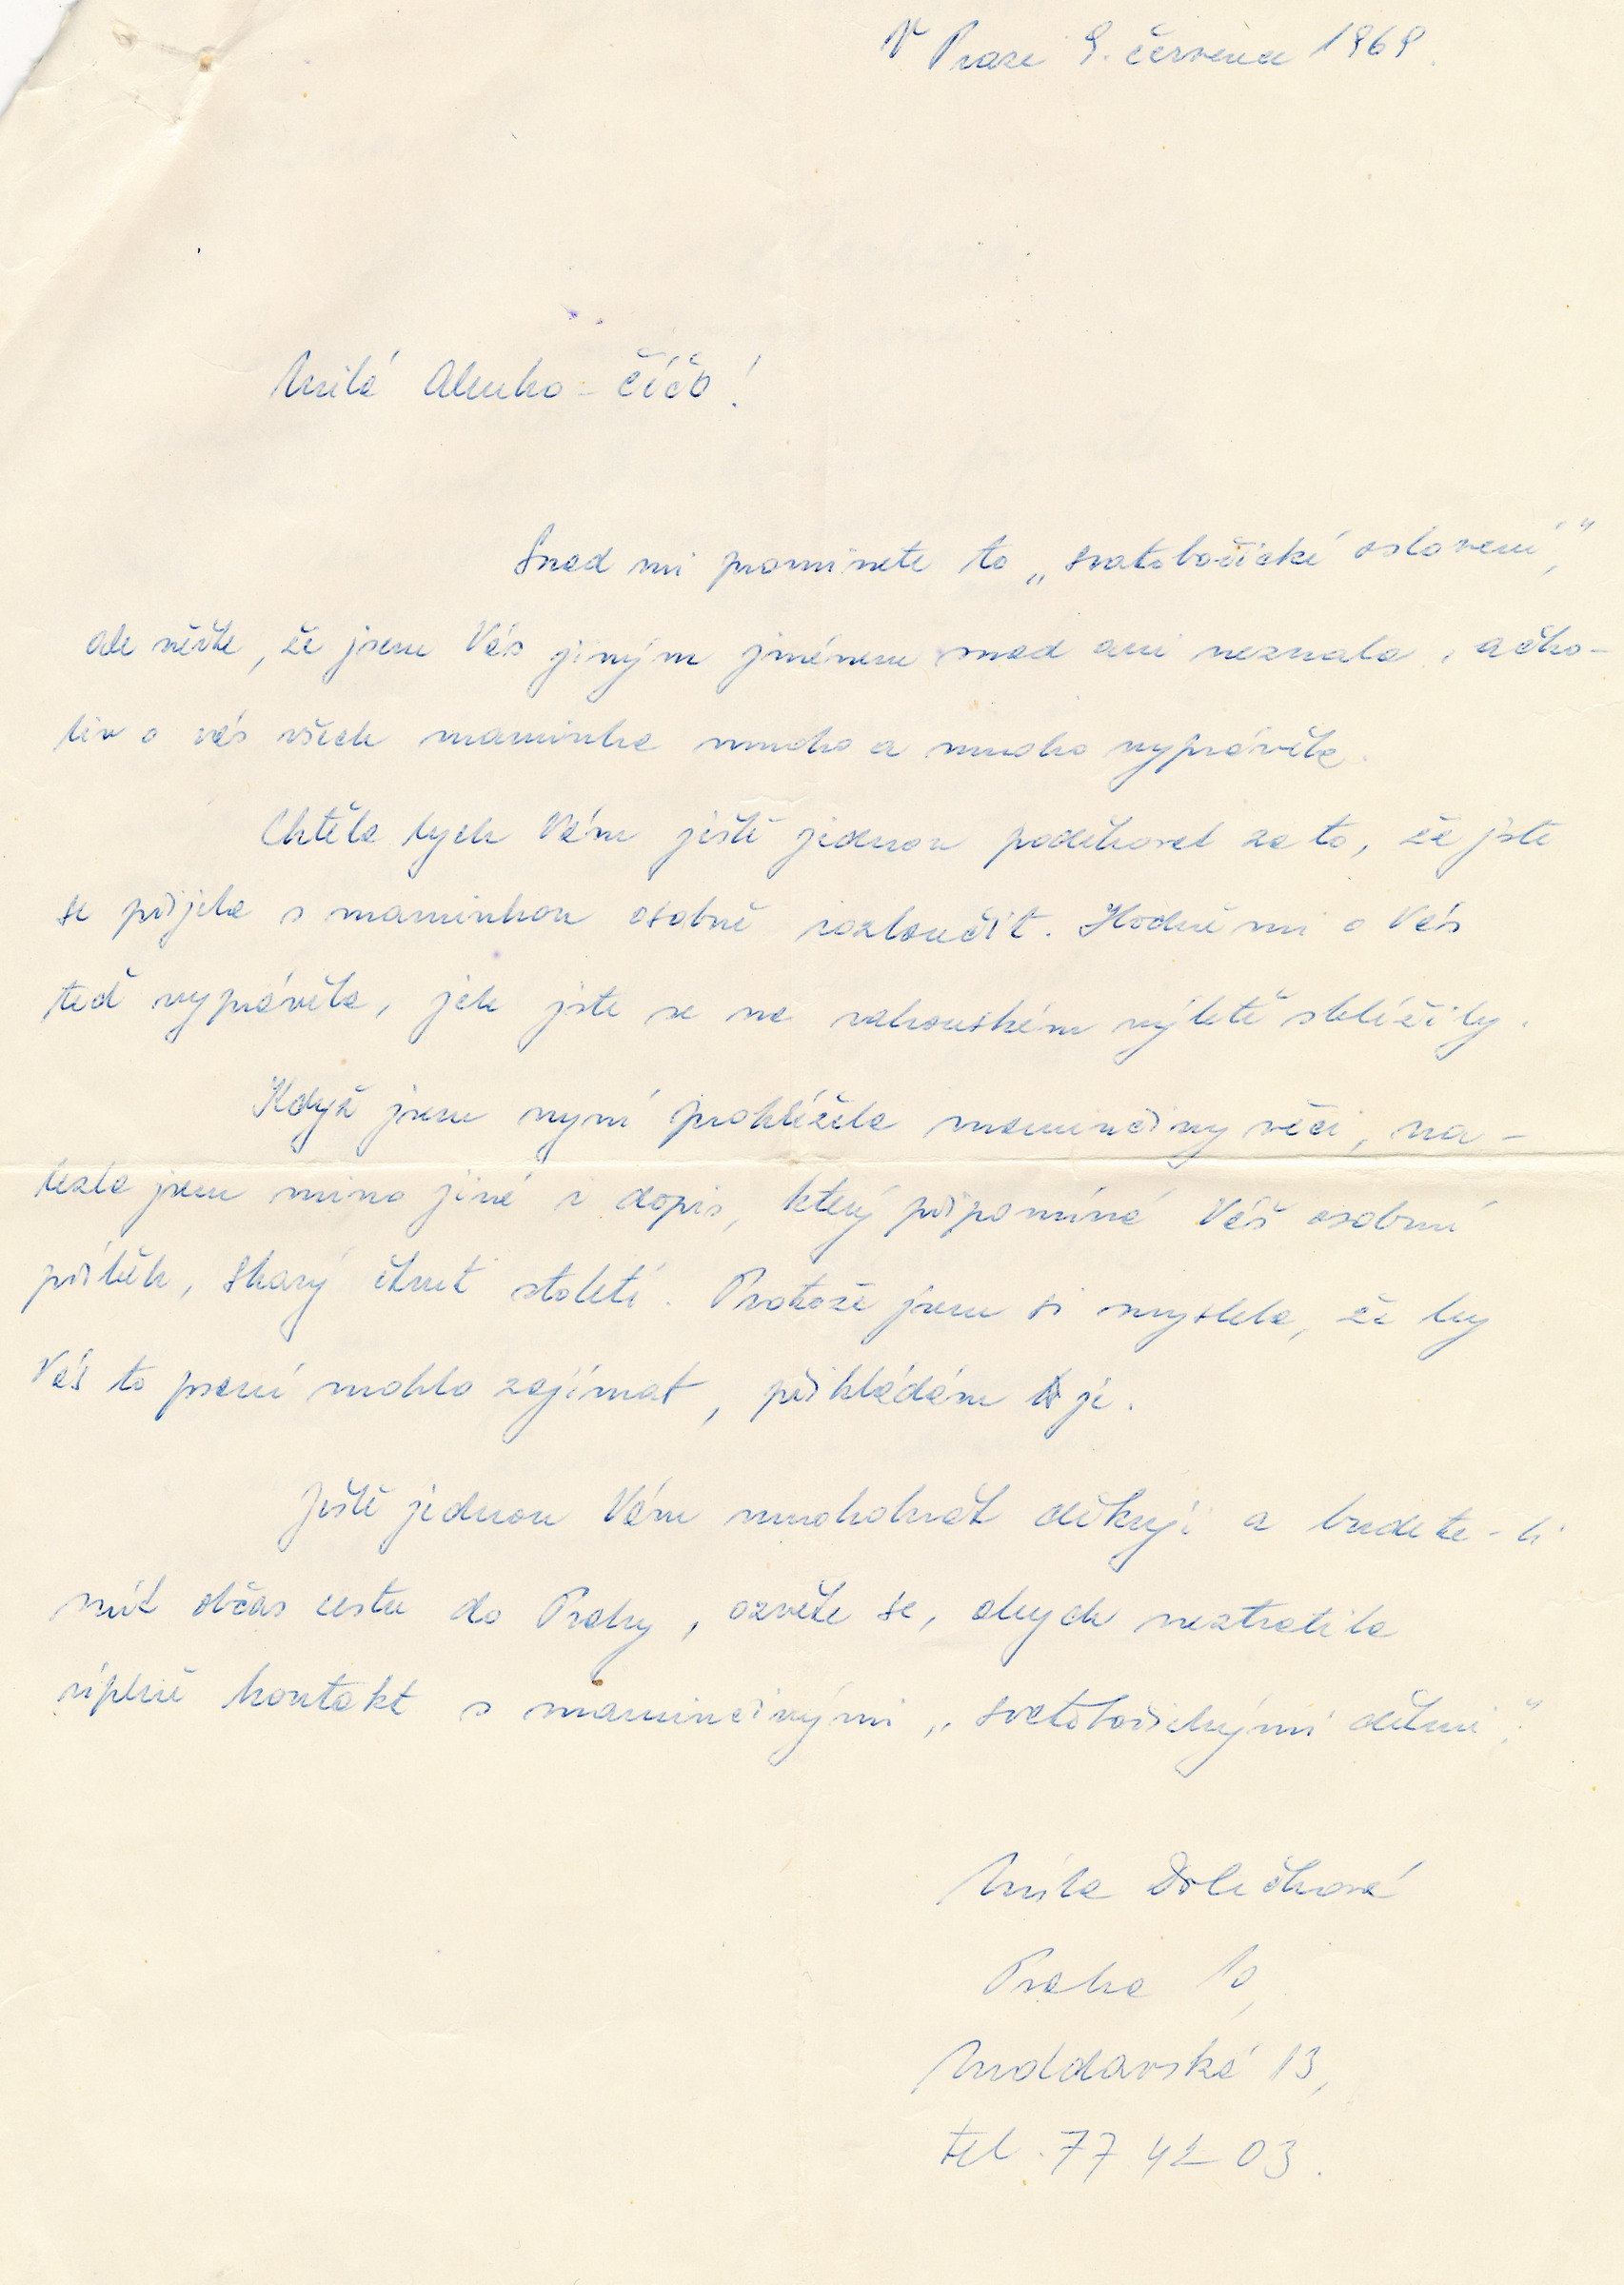 V Praze 9. července 1969.
Milá Alenko - číčo!
Snad mi prominete to „svatobořické oslovení“,
ale věřte, že jsem Vás jiným jménem snad ani neznala, ačko-
liv o vás všech maminka mnoho a mnoho vyprávěla.
Chtěla bych Vám ještě jednou poděkovat za to, že jste
se přijela s maminkou osobně rozloučit. Hodně mi o Vás
teď vyprávěla, jak jste se na rakouském výletě sblížily.
Když jsem nyní prohlížela maminčiny věci, na-
lezla jsem mimo jiné i dopis, který připomíná Váš osobní
příběh, starý čtvrt století. Protože jsem si myslela, že by
Vás to psaní mohlo zajímat, přikládám je.
Ještě jednou Vám mnohokrát děkuji a budete-li
mít občas cestu do Prahy, ozvěte se, abych neztratila
úplně kontakt s maminčinými „svatobořickými dětmi“.
Míla Dolečková
Praha 10,
Moldavská 13,
tel. 77 42 03.